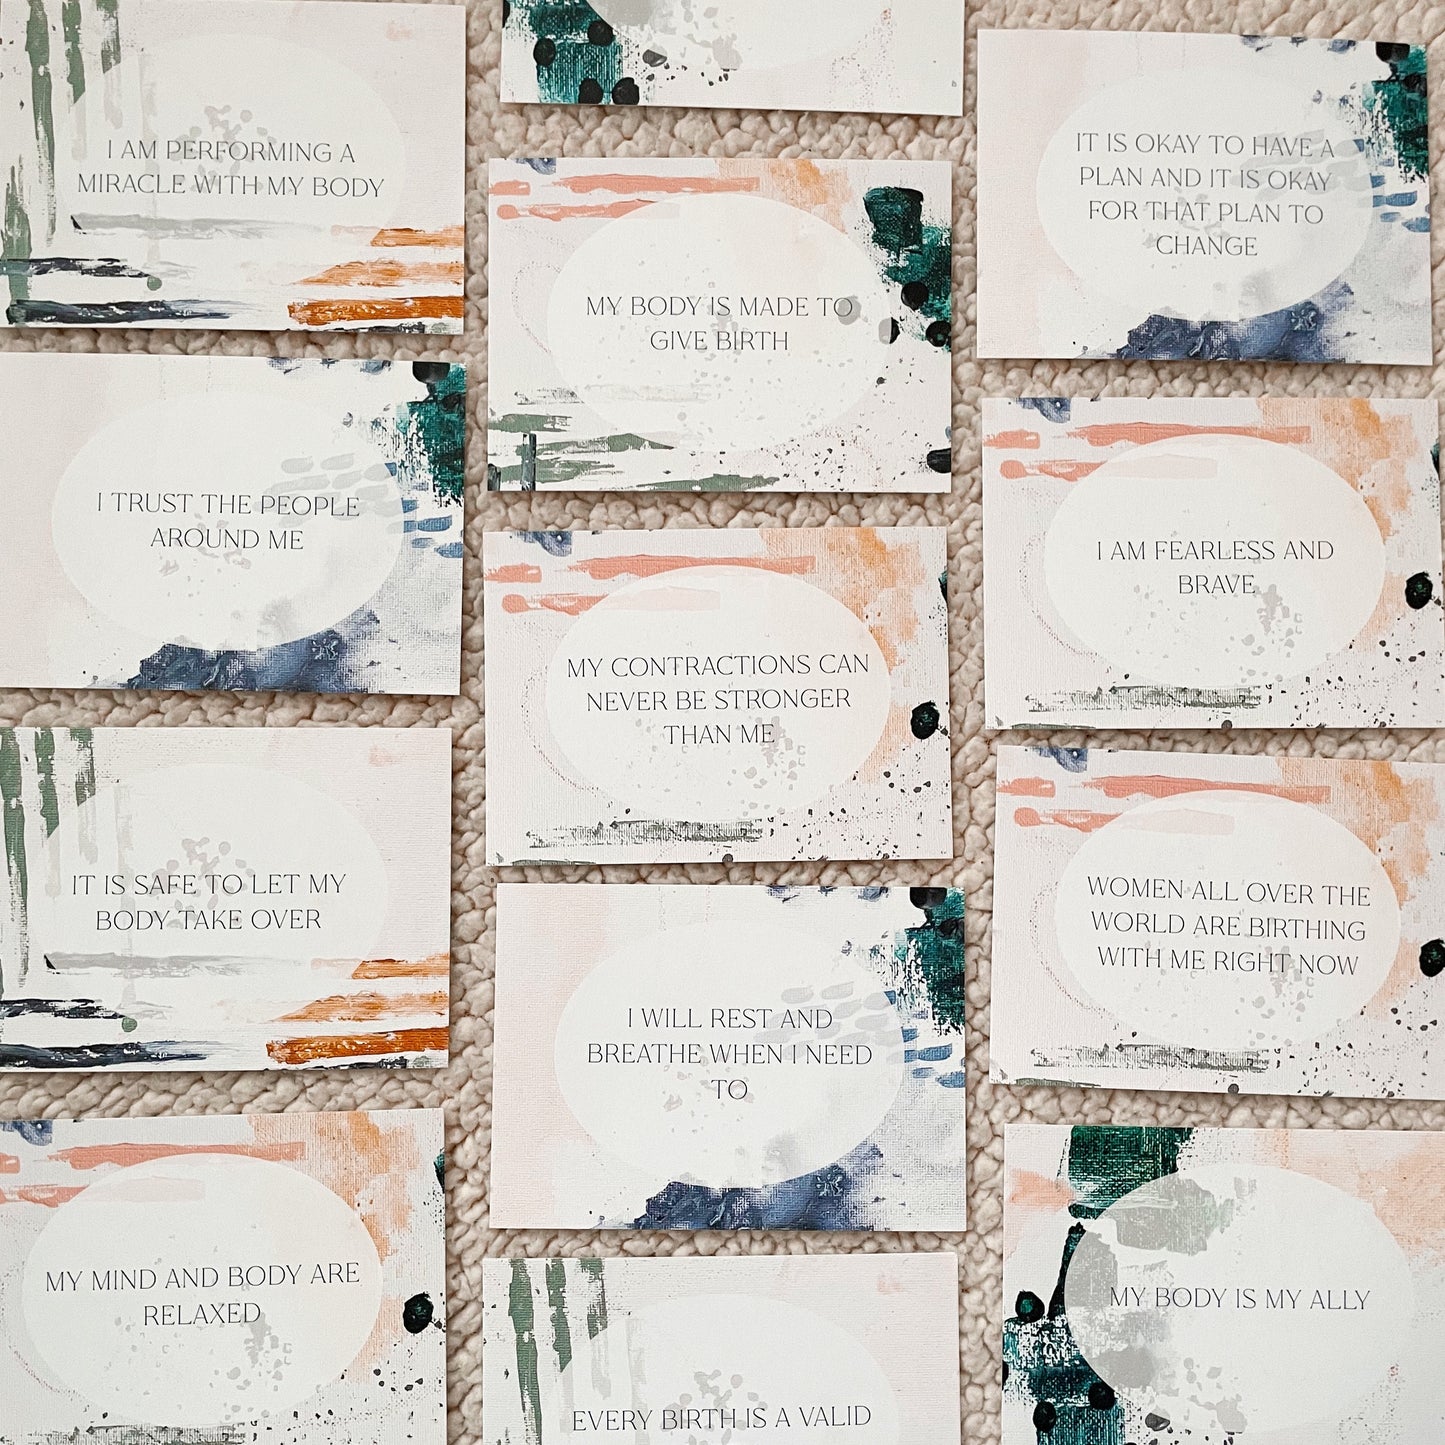 I AM PERFORMING A
MIRACLE WITH MY BODY
I TRUST THE PEOPLE
AROUND ME
IT IS SAFE TO LET MY
BODY TAKE OVER
MY MIND AND BODY ARE
RELAXED
MY BODY IS MADE TO
GIVE BIRTH
MY CONTRACTIONS CAN
NEVER BE STRONGER
THAN ME
I WILL REST AND
BREATHE WHEN I NEED
TO
EVERY BIRTH IS A VALID
IT IS OKAY TO HAVE A
PLAN AND IT IS OKAY
FOR THAT PLAN TO
CHANGE
I AM FEARLESS AND
BRAVE
WOMEN ALL OVER THE
WORLD ARE BIRTHING
WITH ME RIGHT NOW
MY BODY IS MY ALLY